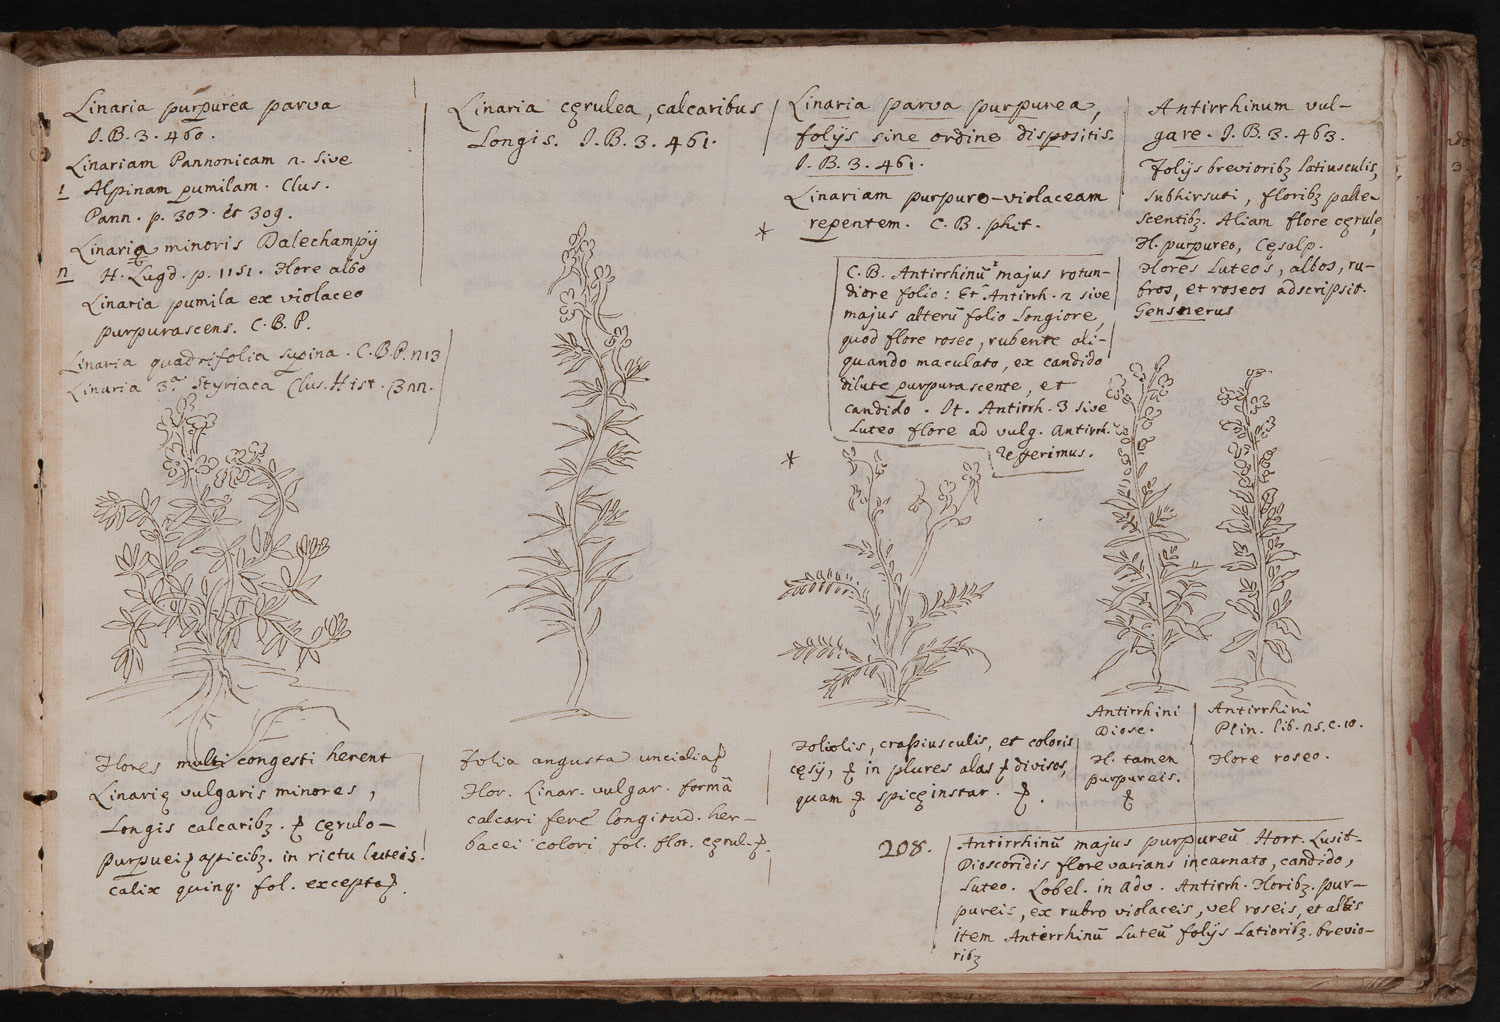 Linaria purpurea parva
I. B. 3. 460.
Linariam Pannonicam n. sive
1 Alpinam pumilam. Clus.
Pann. p. 307. et 309.
Linaria minoris Dalechampij
n H. Lugd. p. 1151. Flore albo
Linaria pumila ex violaceo
purpurascens. C. B. P.
Linaria quadrifolia supina. C. B. P. n 13
Linaria 3.a Styriaca Clus. Hist.
Flores multi congesti herent
Linarię vulgaris minores,
Longis calcaribz. cęrulo-
purpuei apicibz. in rictu luteis.
calix quinq. fol. excepta
Linaria cęrulea, calcaribus
Longis. I. B. 3. 461.
folia angusta
Flor. Linar. vulgar. formâ
calcari fere longitud. her-
bacei colori fol. flor. cęrul.
Linaria parva purpurea,
folijs sine ordine dispositis.
I. B. 3. 461.
Linariam purpuro-violaceam
* repentem. C. B. phit.
C. B. Antirrhinū 1 majus rotun-
diore folio: Et Antirrh. 2 sive
majus alterū folio Longiore,
quod flore roseo, rubente ali-
quando maculato, ex candido
dilute purpurascente, et
candido. It. Antirrh. 3 sive
Luteo flore ad vulg. Antirrh.
* referimus.
Foliolis, crassiusculis, et coloris
cęsij, in plures alas divisos,
quam spicę instar.
Antirrhinum vul-
gare. I. B. 3. 463.
Folijs brevioribz Latiusculis,
subhirsuti, floribz palle-
scentibz. Aliam flore cęrule,
Fl. purpureo, Cęsalp.
Flores Luteos, albos, ru-
bros, et roseos adscripsit.
Gensnerus
Antirrhini
Diosc.
Fl. tamen
purpureis.
Antirrhini
Plin. lib. 25. c. 10.
Flore roseo.
208. Antirrhinū majus purpureū Hort. Lusit.
Dioscoridis flore varians incarnato, candido,
Luteo. Lobel. in Adv. Antirrh. Floribz. pur-
pureis, ex rubro violaceis, vel roseis, et albis
item Anterrhinū Luteū folijs Latioribz. brevio-
ribz